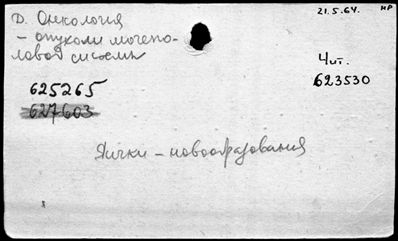 Д. Онкология
– опухоли мочепо-
ловой системы
21.5.64. НР
Чит.
623530
625265
627603
Яички – новообразования